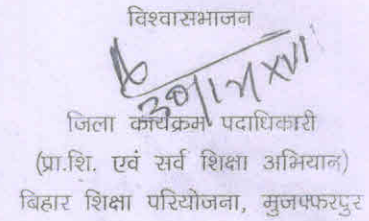 विश्वासभाजन
30/12/XVI
जिला कार्यक्रम पदाधिकारी
(प्रा.शि. एवं सर्व शिक्षा अभियान)
बिहार शिक्षा परियोजना, मुजफ्फरपुर